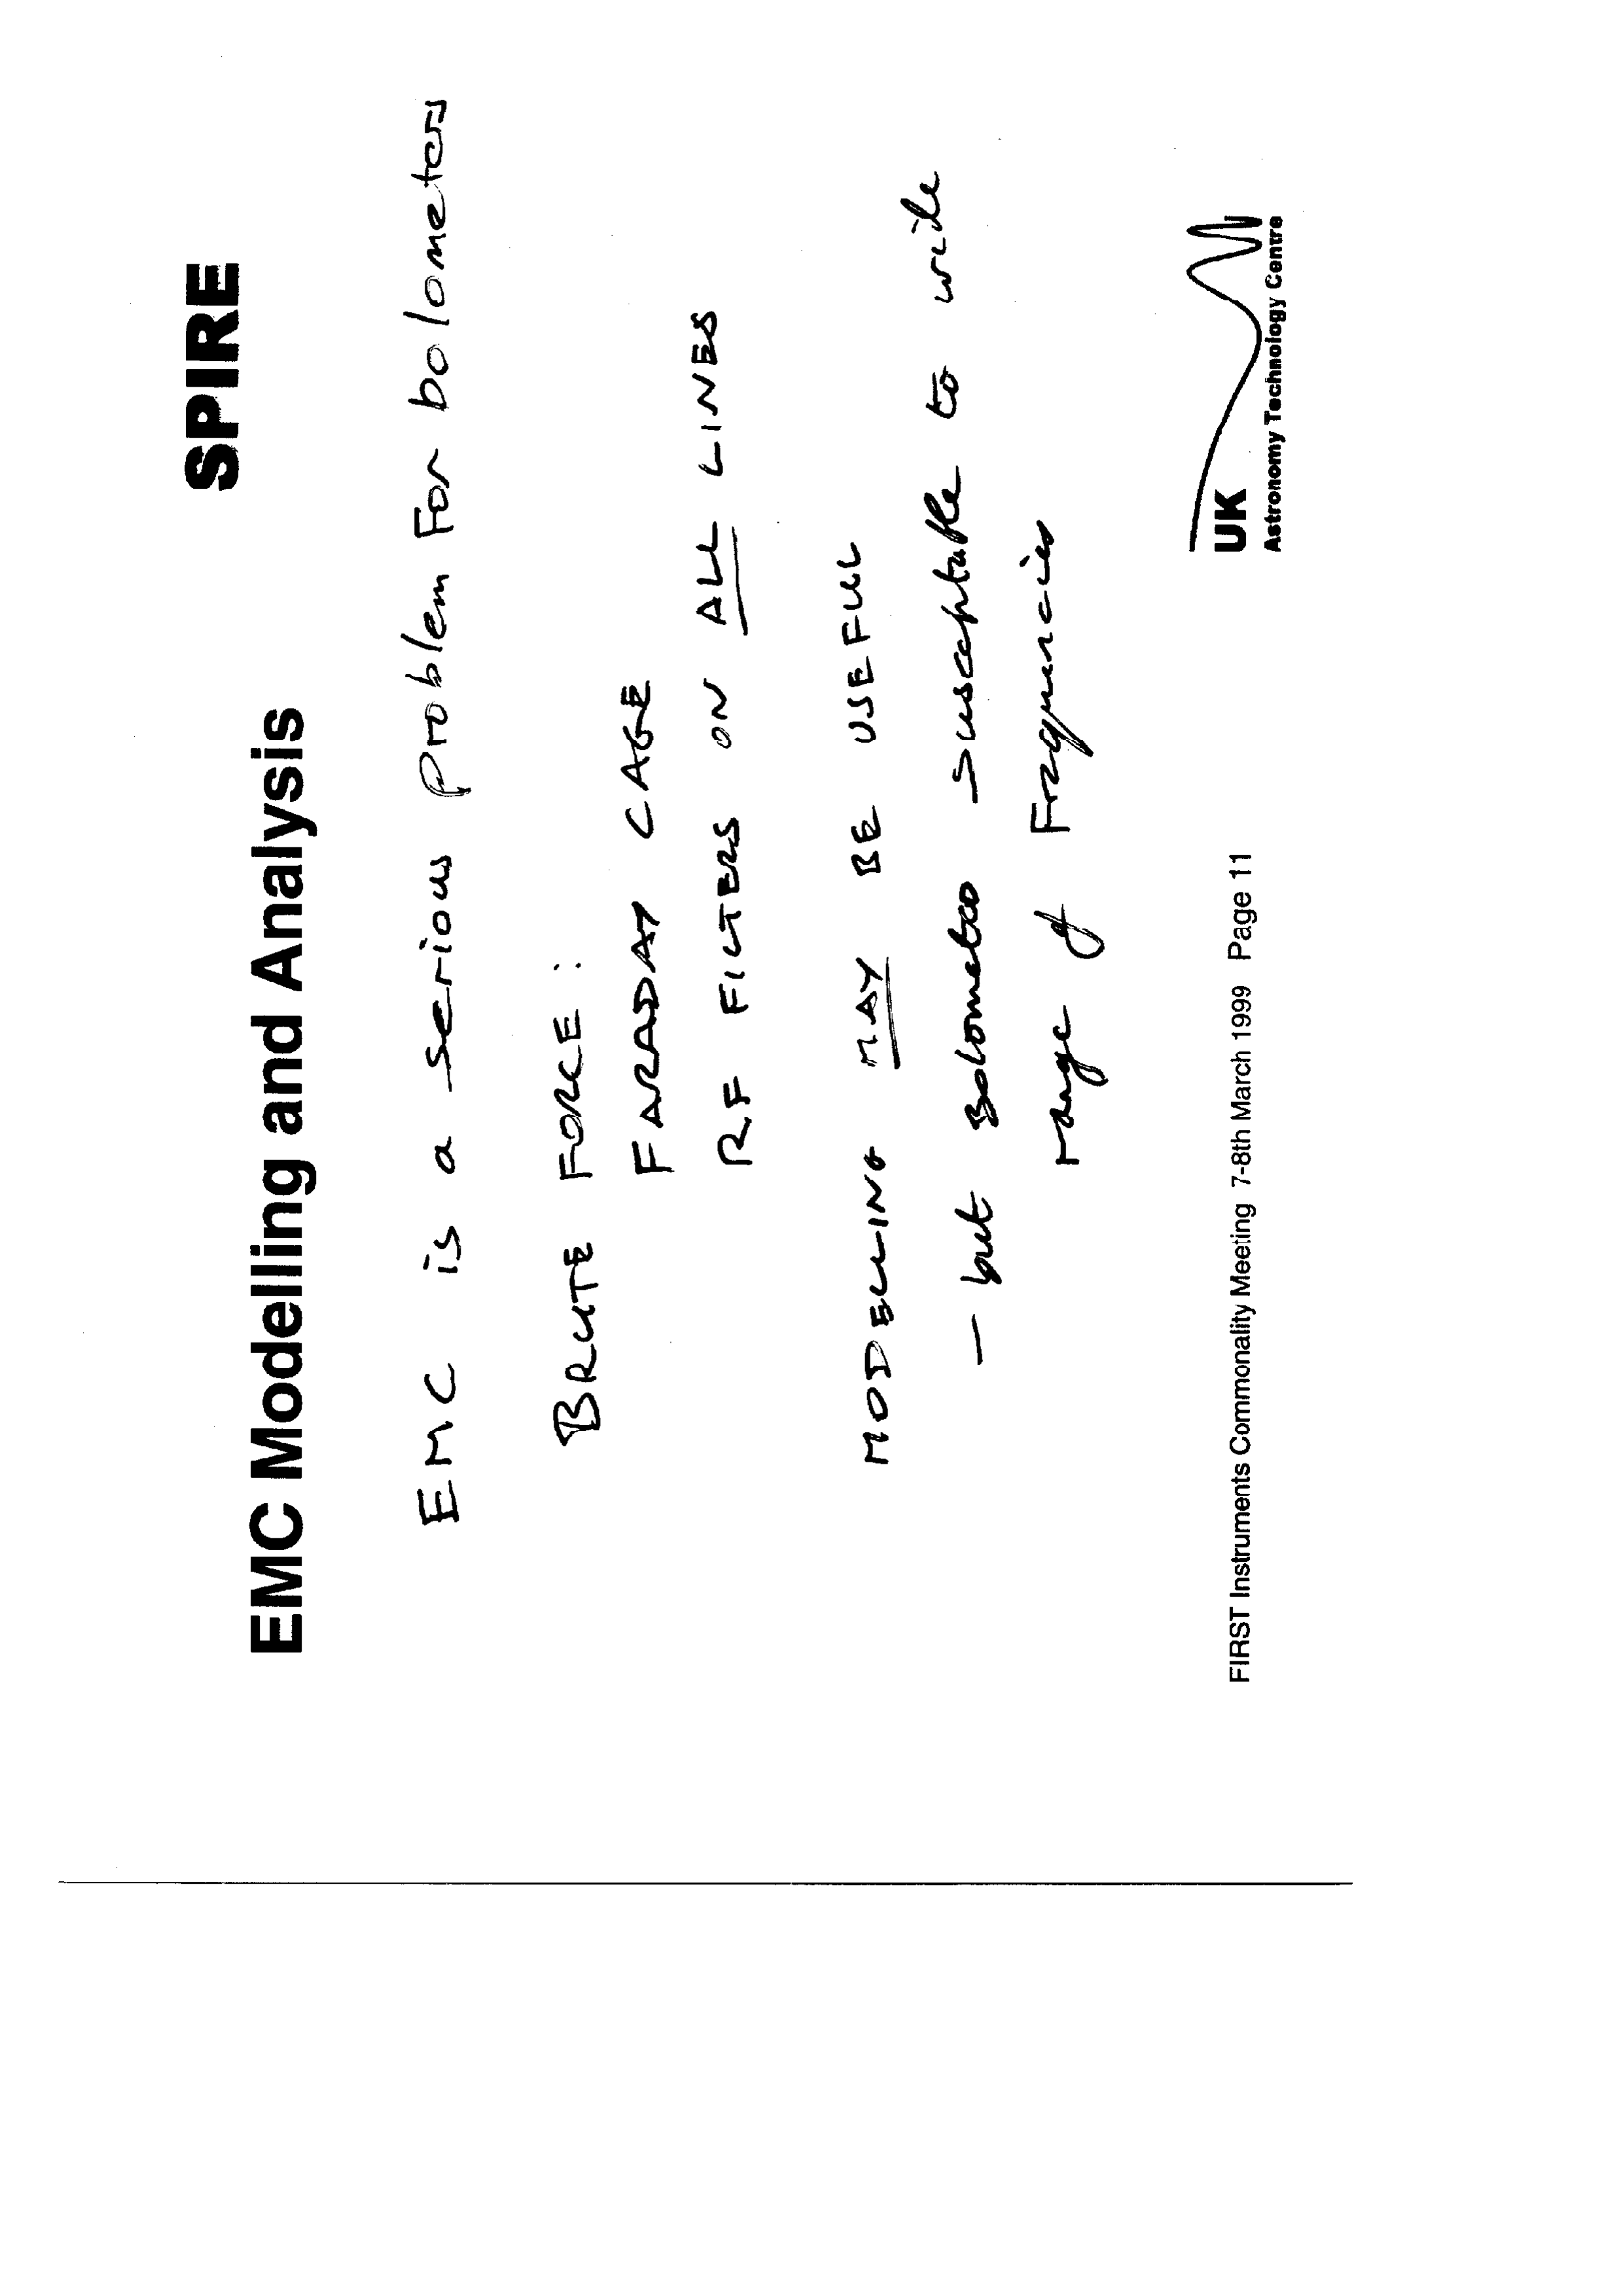 SPIRE
EMC Modelling and Analysis
EMC is a serious problem for bolometers
BRUTE FORCE:
FARADAY CAGE
RF FILTERS ON ALL LINES
MODELLING MAY BE USEFUL
– but Bolometers susceptable to wide
range of Frequencies
FIRST Instruments Commonality Meeting 7-8th March 1999 Page 11
UK
Astronomy Technology Centre